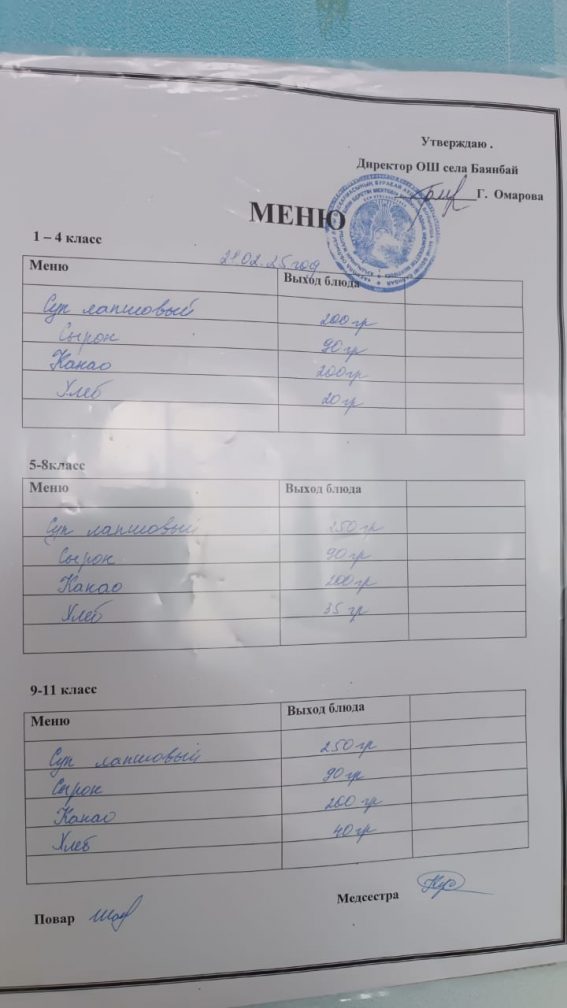 Утверждаю .
Директор ОШ села Баянбай
Г. Омарова
МЕНЮ
1 – 4 класс
02.25 год
Меню Выход блюда
Суп лапшовый 200 гр
Сырок 90 гр
Какао 200 гр
Хлеб 20 гр
5-8класс
Меню Выход блюда
Суп лапшовый 250 гр
Сырок 90 гр
Какао 200 гр
Хлеб 35 гр
9-11 класс
Меню Выход блюда
Суп лапшовый 250 гр
Сырок 90 гр
Какао 200 гр
Хлеб 40 гр
Медсестра
Повар